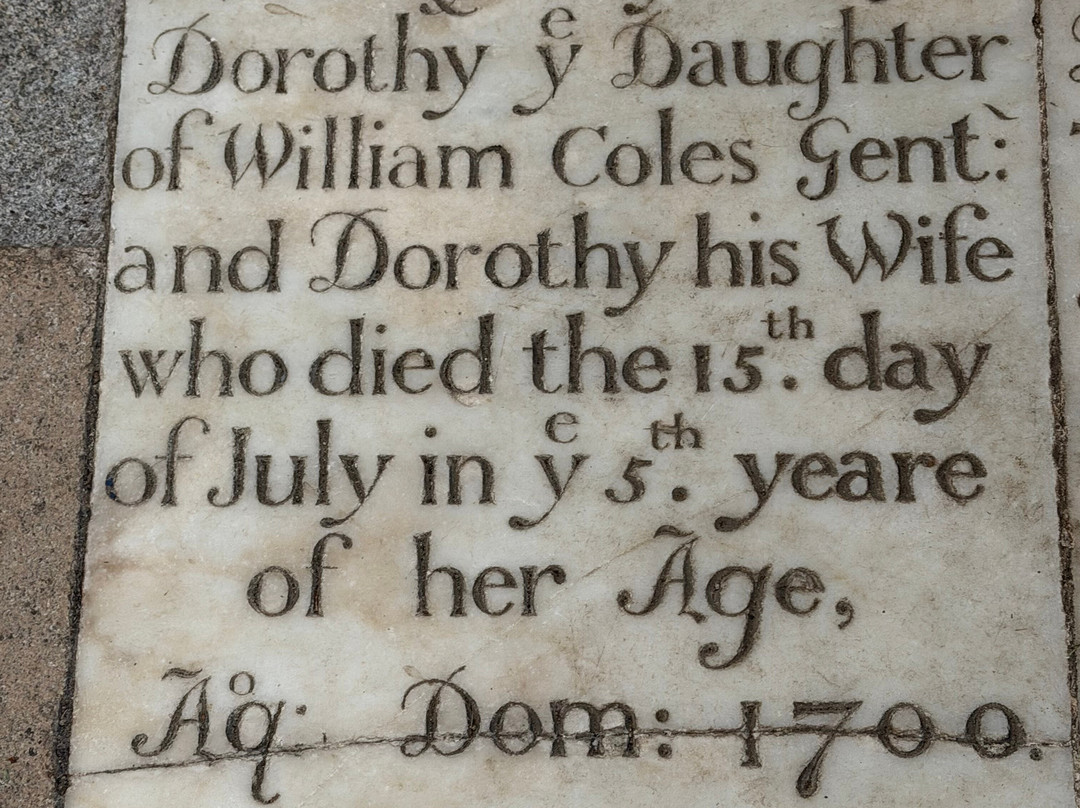 Dorothy yᵉ Daughter
of William Coles Gent:
and Dorothy his Wife
who died the 15.ᵗʰ day
of July in yᵉ 5.ᵗʰ yeare
of her Age,
Aº̨q. Dom: 1700.